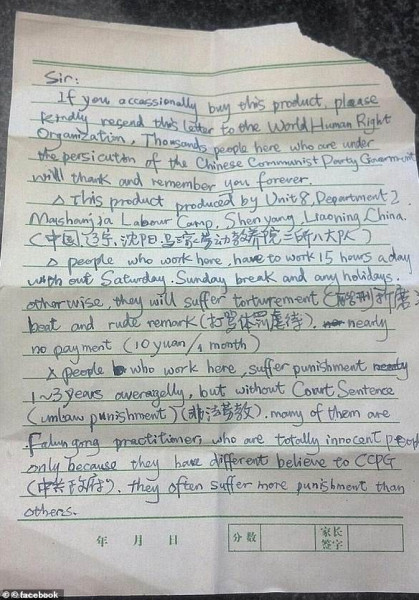 Sir:
If you occassionally buy this product, please
kindly resend this letter to the World Human Right
Organization, Thousands people here who are under
the persicution of the Chinese Communist Party Government
will thank and remember you forever.
△ This product produced by Unit 8, Department 2
Mashanjia Labour Camp, Shen yang, Liaoning, China.
(中国,辽宁,沈阳,马三家劳动教养院二所八大队)
△ people who work here, have to work 15 hours a day
with out Saturday. Sunday break and any holidays.
otherwise, they will suffer torturement (酷刑折磨)
beat and rude remark (打骂体罚虐待). nearly
no payment (10 yuan/1 month)
△ people who work here, suffer punishment
1~3 years averagelly, but without Court Sentence
(unlaw punishment) (非法劳教). many of them are
Falun gong practitioner, who are totally innocent people
only because they have different believe to CCPG
(中共政府). they often suffer more punishment than
others.
年 月 日 分数 家长签字
facebook